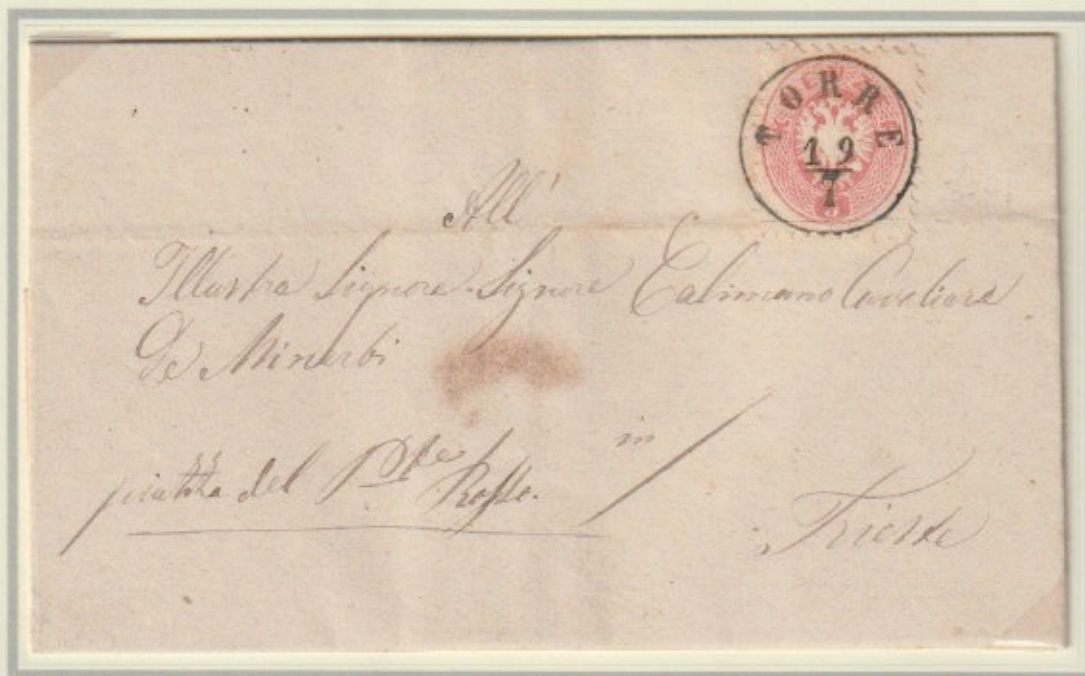 TORRE
19
7
5
All'
Illustre Signore Signore Calimano Cavaliere
De Minerbi
piazza del Pte Rosso.
in
Trieste